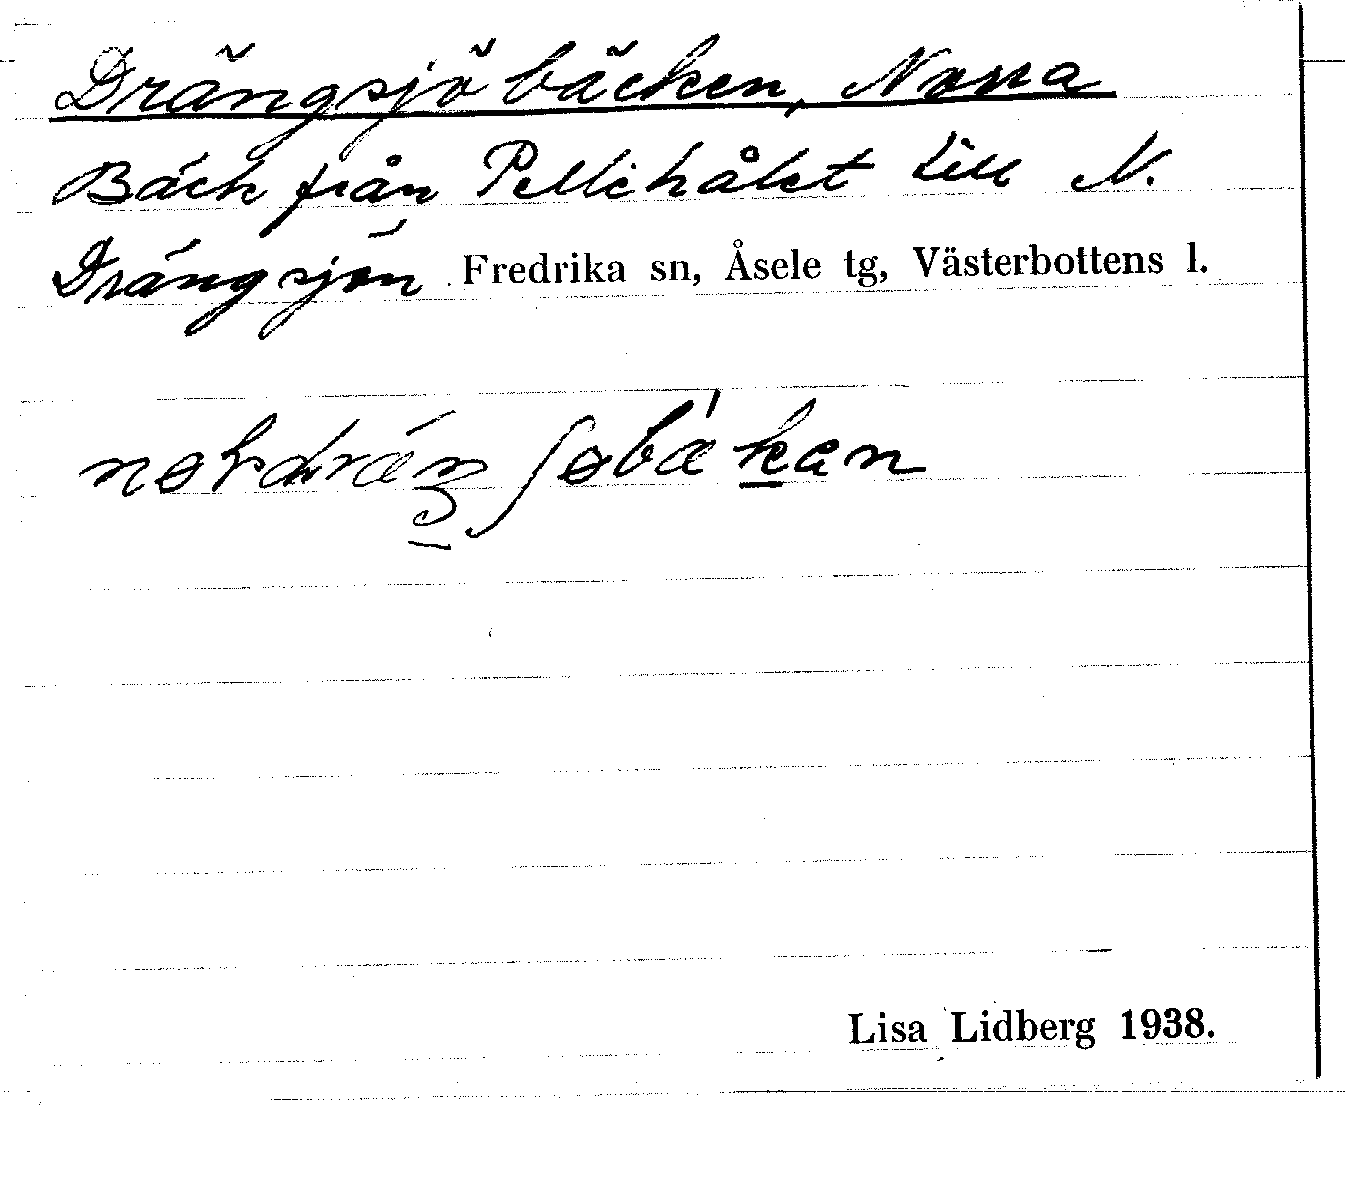 Drängsjöbäcken, Norra
Bäck från Pellehålet till N.
Drängsjön Fredrika sn, Åsele tg, Västerbottens l.
Lisa Lidberg 1938.